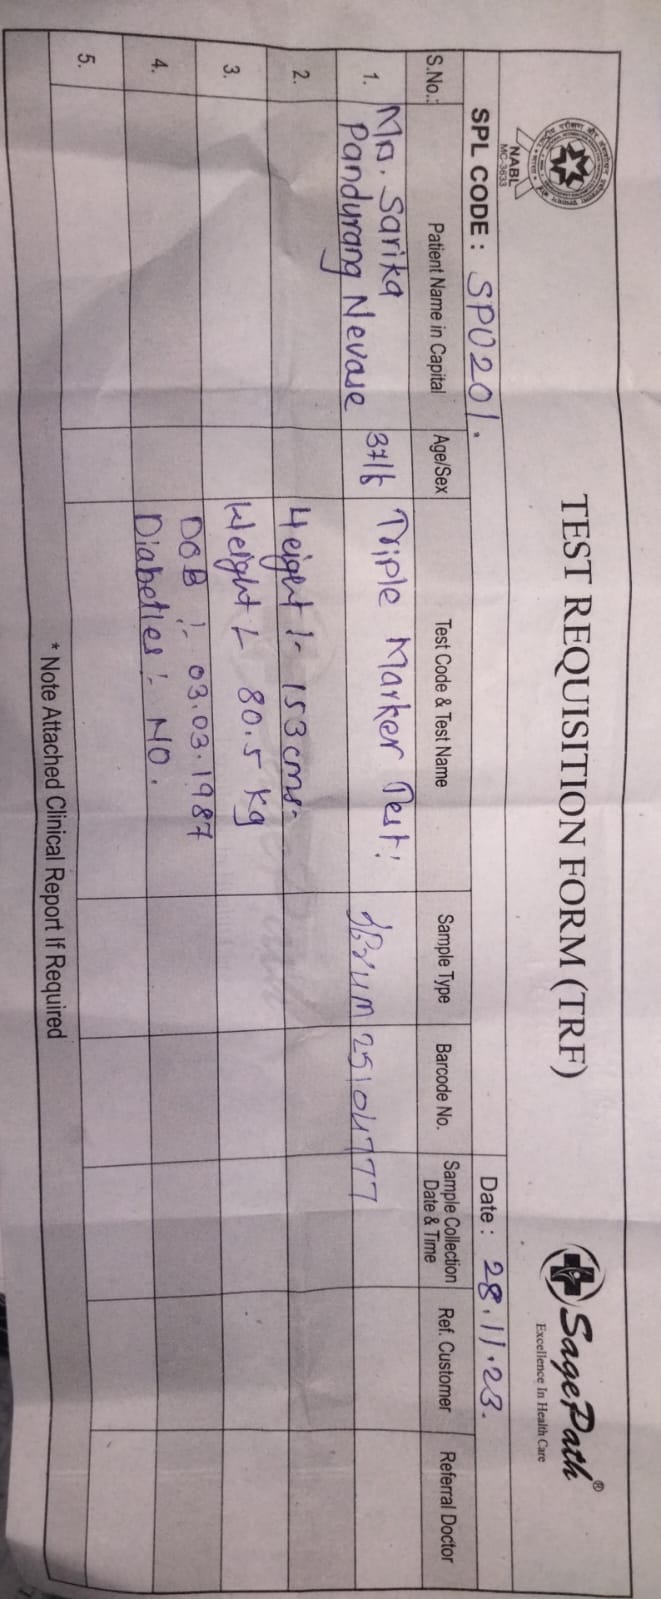 TEST REQUISITION FORM (TRF)
SagePath®
Excellence In Health Care
NABL
MC-3633
SPL CODE : SPU201.
Date : 28.11.23.
S.No.: Patient Name in Capital Age/Sex Test Code & Test Name Sample Type Barcode No. Sample Collection Date & Time Ref. Customer Referral Doctor
1. Mrs. Sarika Pandurang Nevase 37/F Triple Marker Test: Serum 25104777
2. Height :- 153cms-
3. Weight :- 80.5 kg
DOB :- 03.03.1987
4. Diabeties :- NO.
5.
* Note Attached Clinical Report If Required